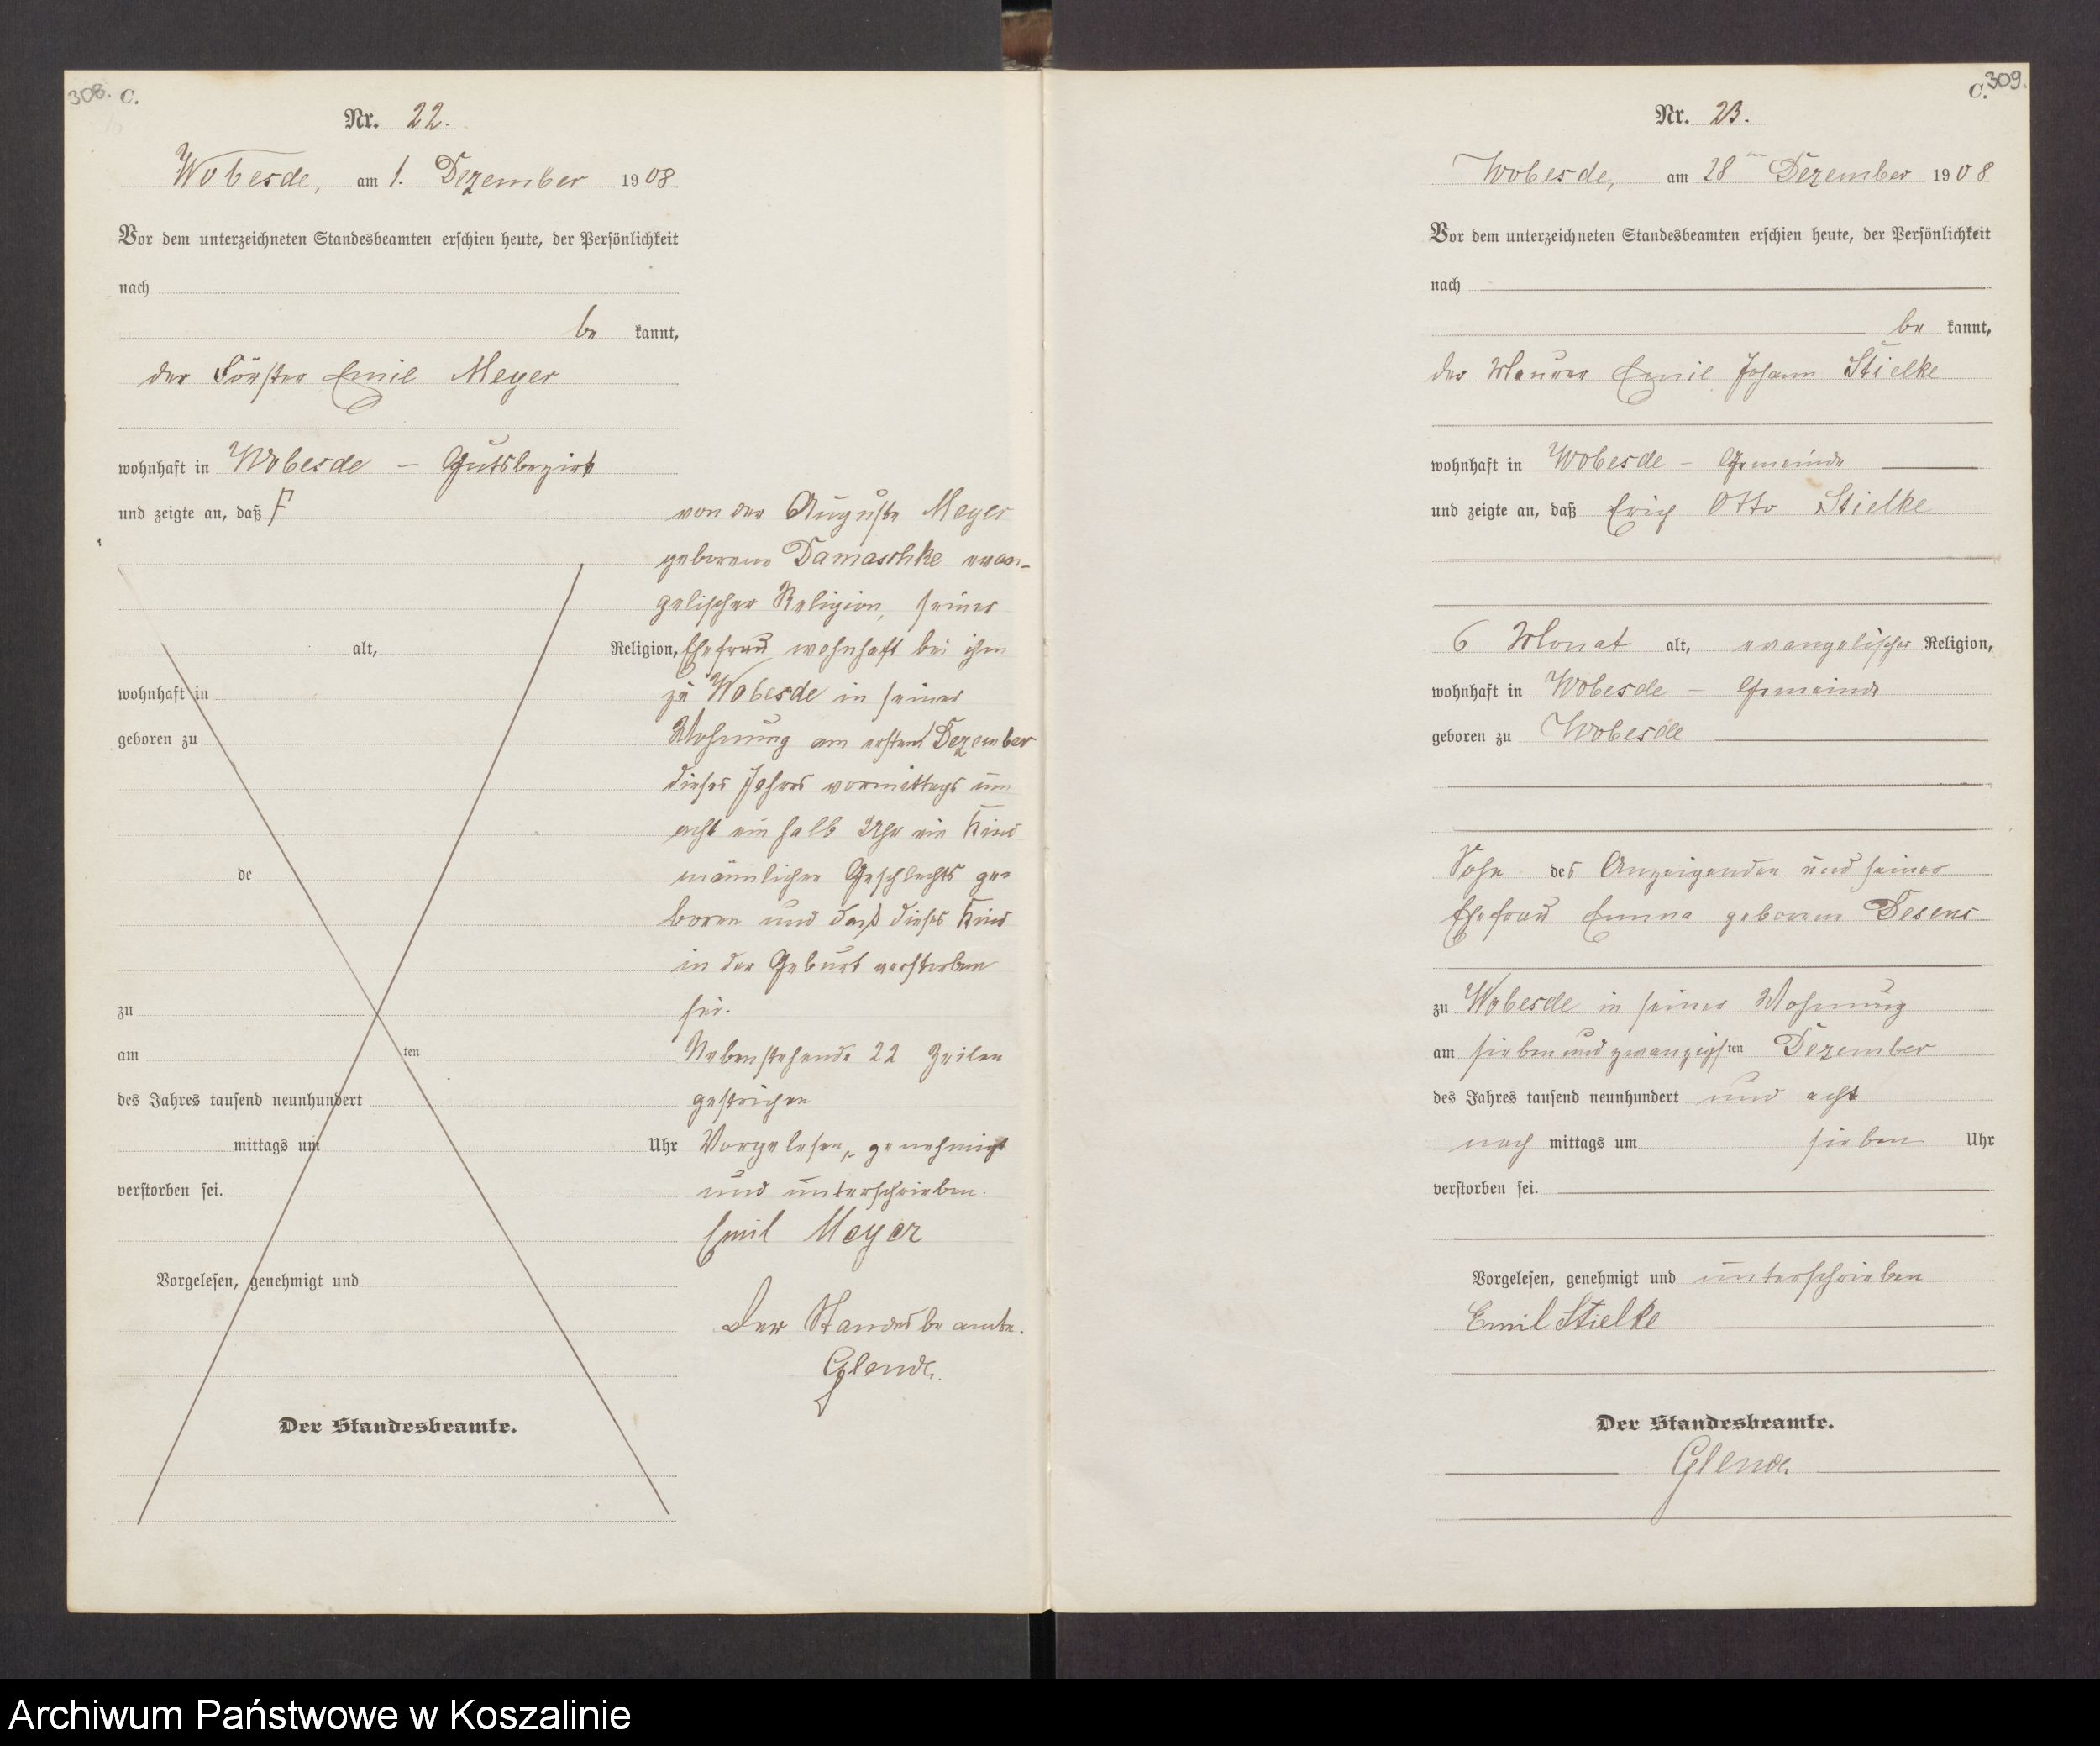 308. C.
Nr. 22.
Wobesde, am 1. Dezember 1908
Vor dem unterzeichneten Standesbeamten erschien heute, der Persönlichkeit
nach
be kannt,
der Förster Emil Meyer
wohnhaft in Wobesde – Gutsbezirk
und zeigte an, daß
alt, Religion,
wohnhaft in
geboren zu
de
zu
am ten
des Jahres tausend neunhundert
mittags um Uhr
verstorben sei.
Vorgelesen, genehmigt und
Der Standesbeamte.
von der Auguste Meyer
geborene Damaschke evan-
gelischer Religion, seiner
Ehefrau wohnhaft bei ihm
zu Wobesde in seiner
Wohnung am ersten Dezember
dieses Jahres vormittags um
acht ein halb Uhr ein Kind
männlichen Geschlechts ge-
boren und daß dieses Kind
in der Geburt verstorben
sei.
Nebenstehende 22 Zeilen
gestrichen
Vorgelesen, genehmigt
und unterschrieben.
Emil Meyer
Der Standesbeamte.
Glende.
C. 309.
Nr. 23.
Wobesde, am 28ten Dezember 1908
Vor dem unterzeichneten Standesbeamten erschien heute, der Persönlichkeit
nach
be kannt,
der Maurer Emil Johann Stielke
wohnhaft in Wobesde – Gemeinde
und zeigte an, daß Erich Otto Stielke
6 Monat alt, evangelischer Religion,
wohnhaft in Wobesde – Gemeinde
geboren zu Wobesde
Sohn des Anzeigenden und seiner
Ehefrau Emma geborene Desens
zu Wobesde in seiner Wohnung
am siebenundzwanzigsten Dezember
des Jahres tausend neunhundert und acht
nach mittags um sieben Uhr
verstorben sei.
Vorgelesen, genehmigt und unterschrieben
Emil Stielke
Der Standesbeamte.
Glende
Archiwum Państwowe w Koszalinie